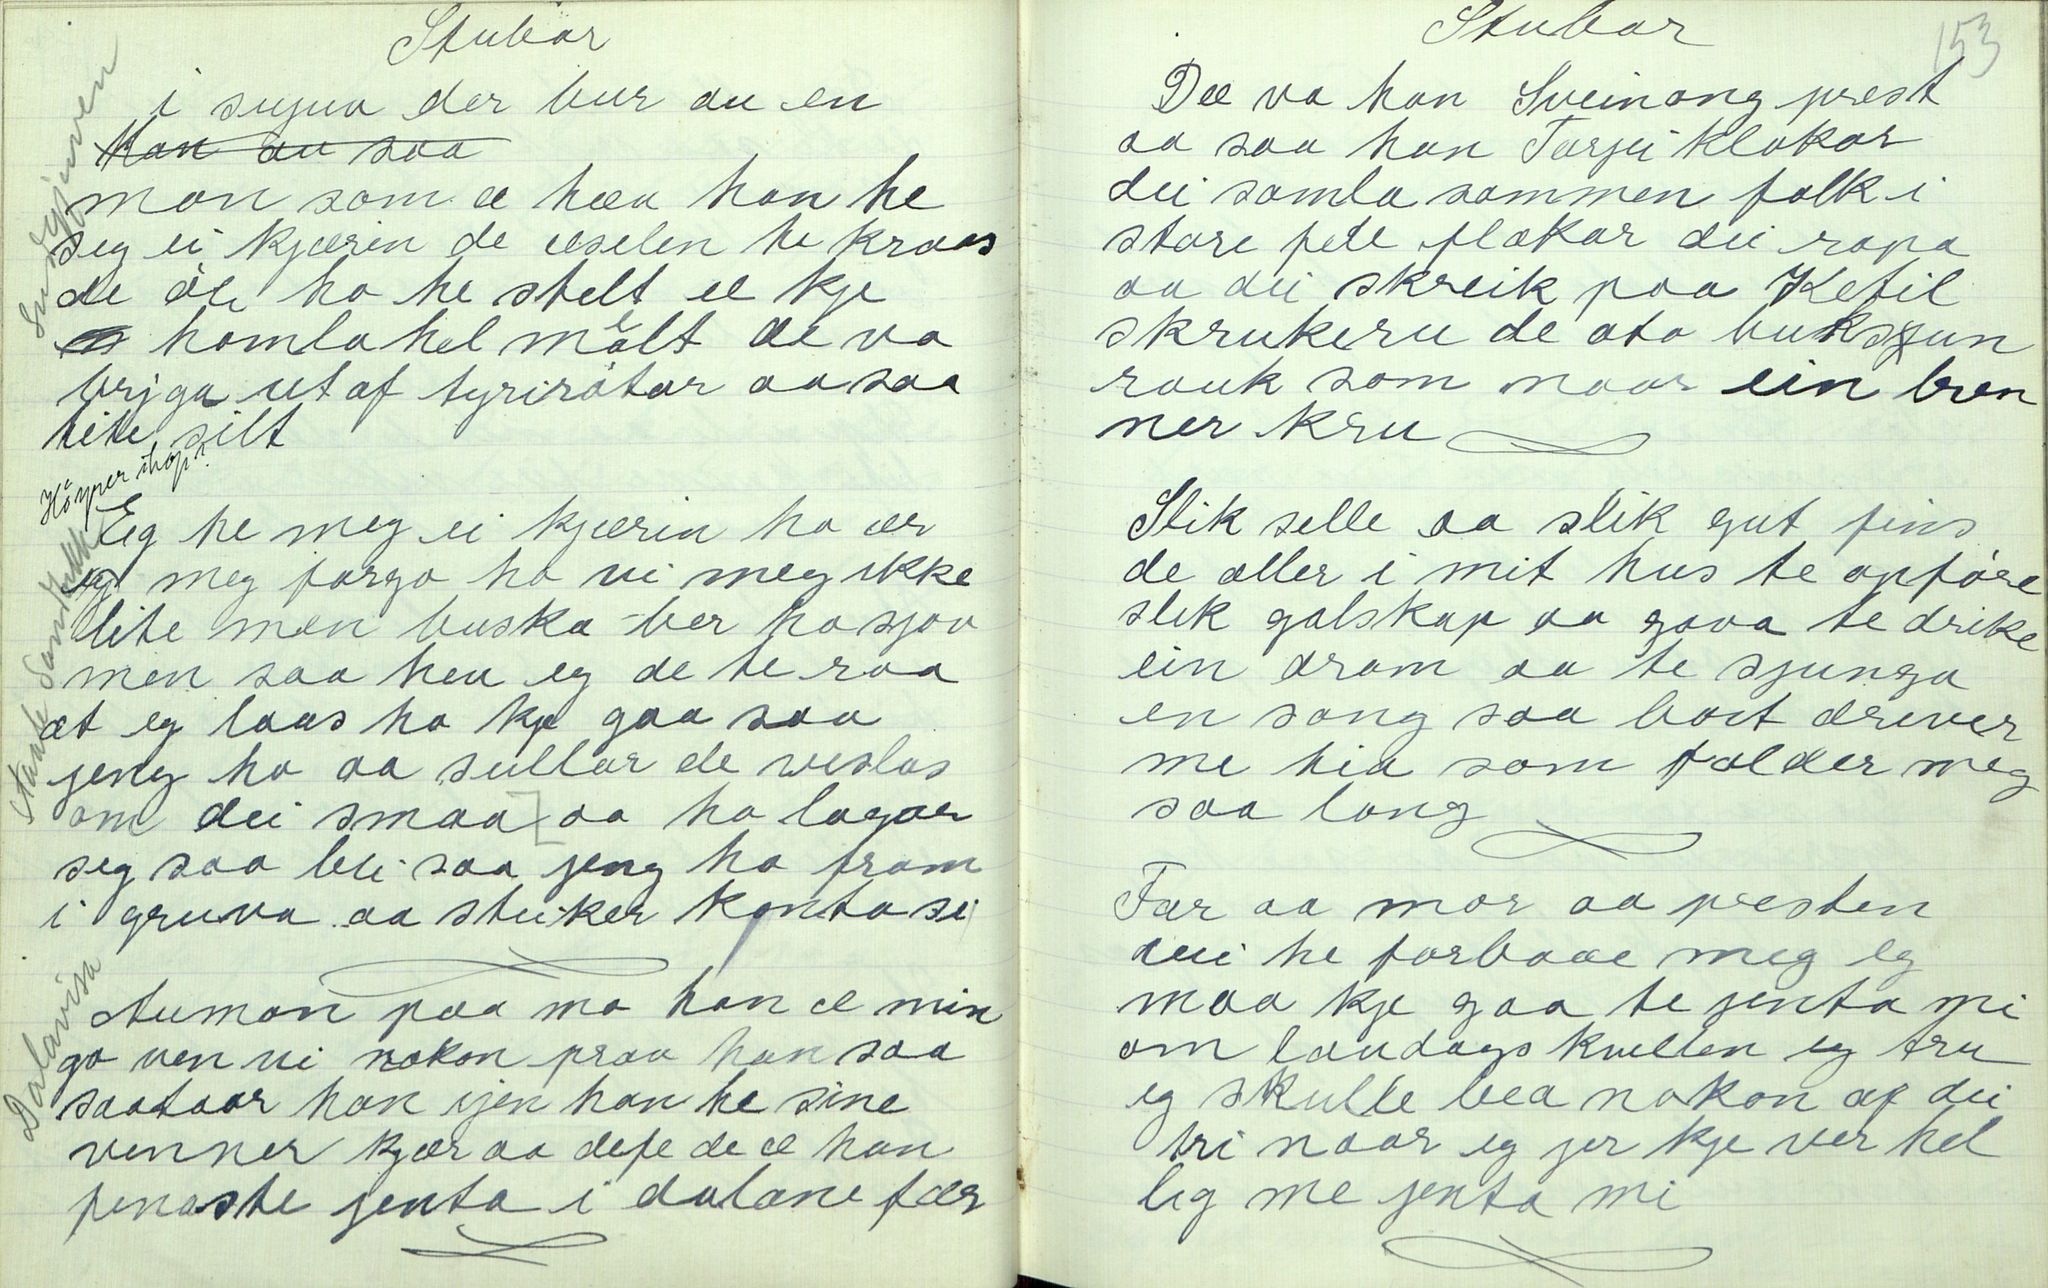 Stubar
i sujua der bur au en
Han au saa
man som æ hæa han he
seg ei kjærin de æselen he kraas
de öli ho he stelt æ kje
homla hel mält de va
brjga ut af tyrirötar aa saa
lite silt
Höyrer ihop?
Eg he meg ei kjærin ho ær
eg meg forga ho vi meg ikke
lite men buska ber ho sjou
men saa heu eg de te raa
at eg laas ho kje gaa saa
jeng ho aa sullar de veslas
om dei smaa] aa ho lagar
seg saa lei saa jeng ho fram
i gruva aa stuker konta si
Aumon paa mo han æ min
go ven vi nokon praa han saa
saataar han ijen han he sine
venner kjær aa defe de æ han
penaste jenta i dalane fær
Dalavisa
Stubar
153
Dæ va han Sveinong prest
aa saa han Tarjei klokar
dei samla sammen folk i
store fele flokar dei ropa
aa dei skreik paa Ketil
skrukeru de oto buksjun
rauk som naar ein bren
ner kru
Slik selle aa slik gut fins
de aller i mit hus te opföre
slik galskap aa gava te drike
ein dram aa te sjunga
en song saa bort drever
me hia som falder meg
saa long
Far aa mor aa presten
dei he forbaae meg eg
maa kje gaa te jenta mi
om laudags kvellen eg tru
eg skulle bea nokon af dei
tri naar eg jer kje ver hel
lig me jenta mi